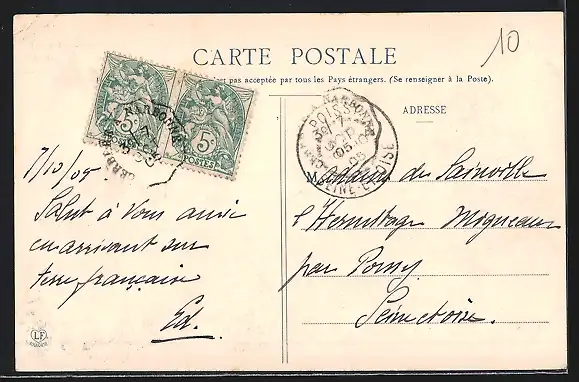 CARTE POSTALE
est pas acceptée par tous les Pays étrangers. (Se renseigner à la Poste).
10
ADRESSE
5c
POSTES
5c
POSTES
NARBONNE
NARBONNE
POISSY
SEINE-ET-OISE
7/10/05.
Salut à vous aussi
en arrivant sur
terre française
Ed.
Madame de Sainville
l'Hermitage Migneaux
par Poissy
Seine et oise.
LF